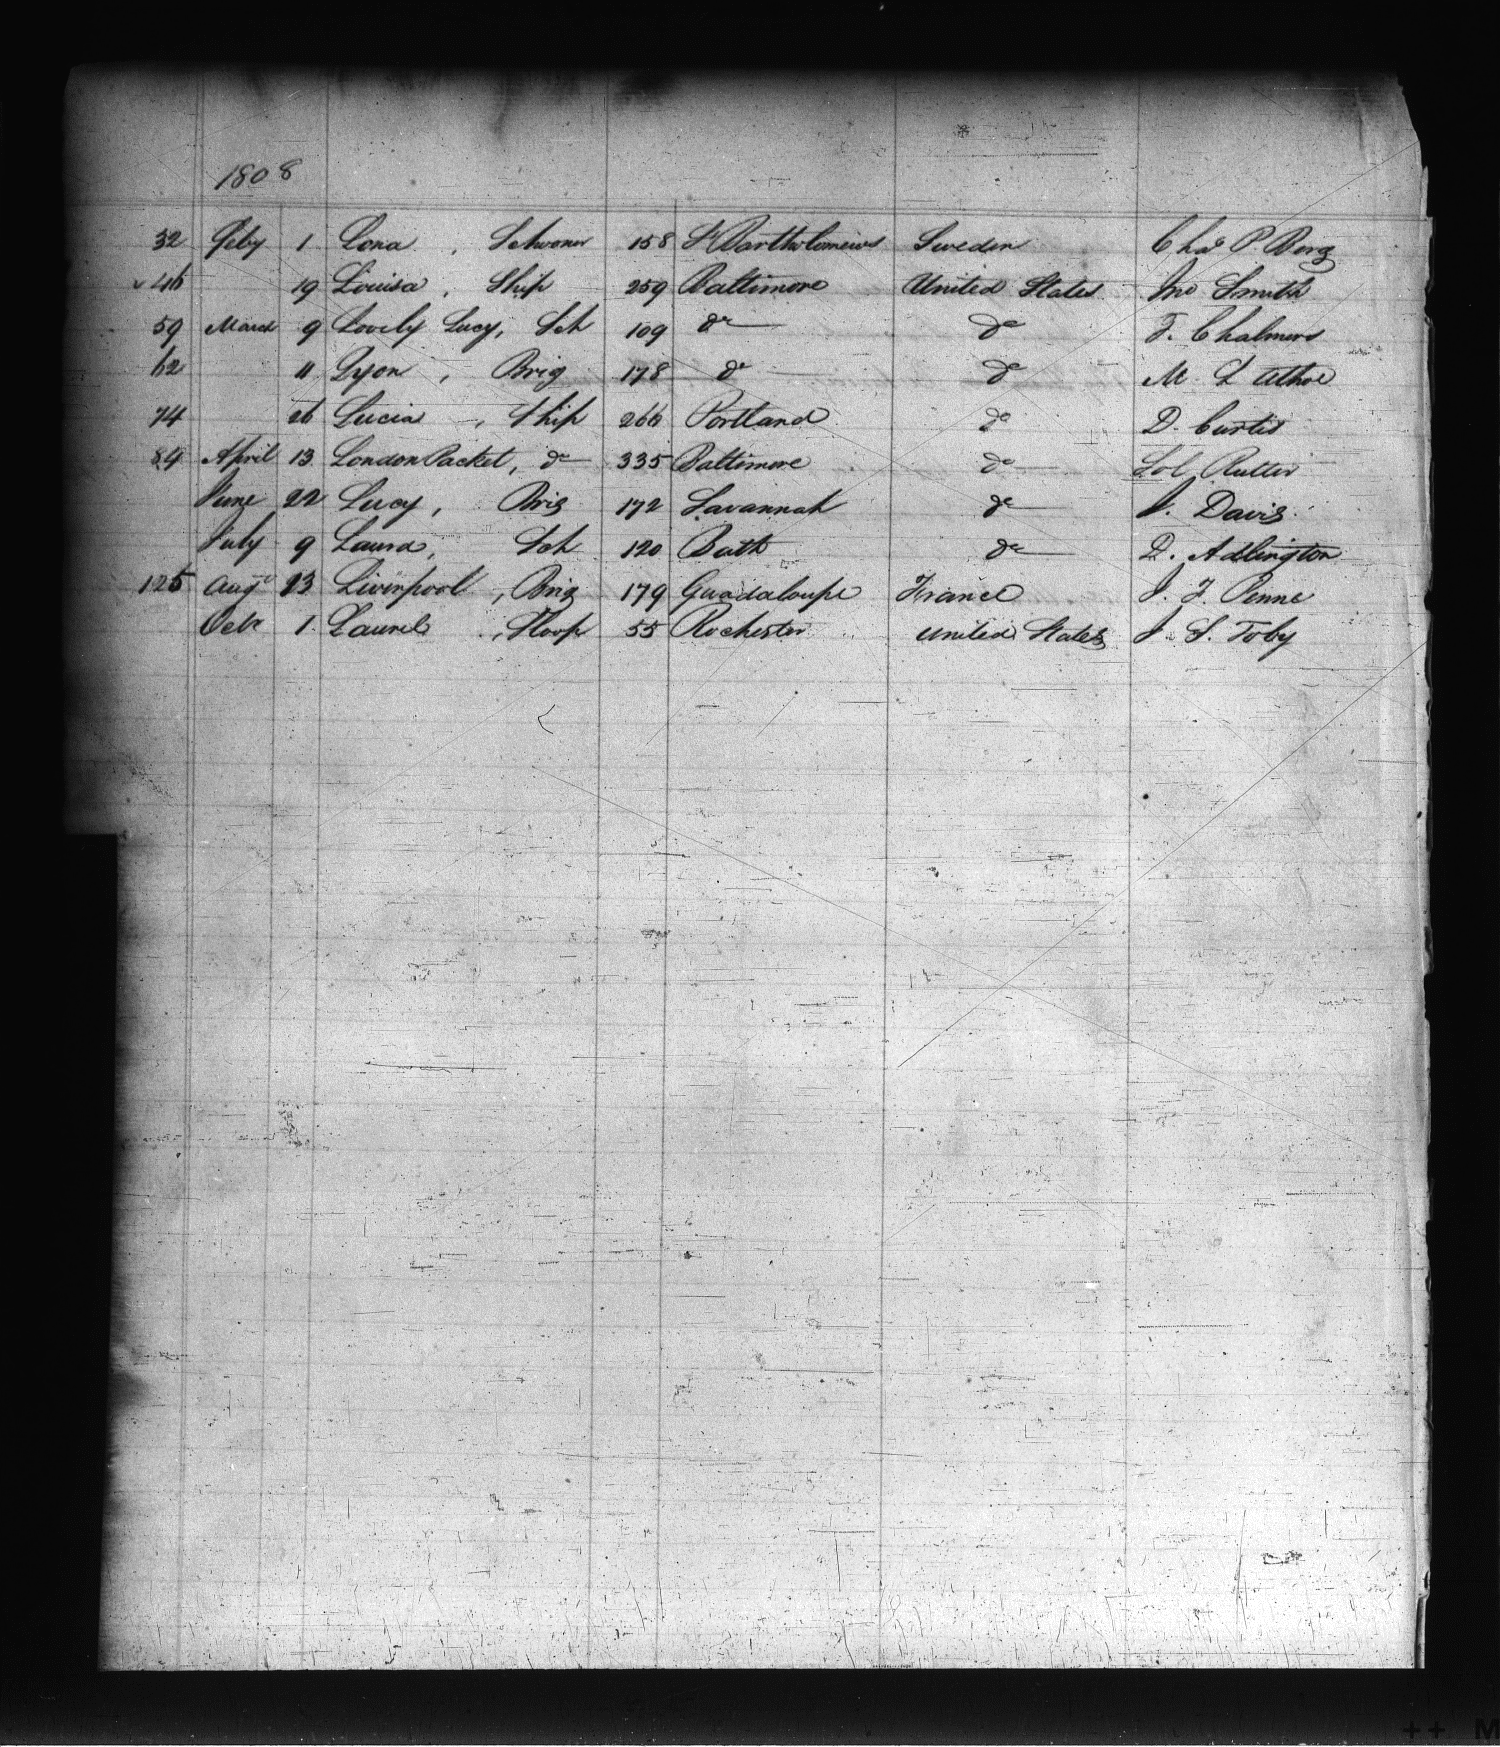 1808
32 Feby 1 Lona , Schooner 158 St Bartholomews Sweden Chas P Berg
46 19 Louisa , Ship 259 Baltimore United States Jno Smith
59 March 9 Lovely Lucy, Sch 109 do do T. Chalmers
62 11 Lyon , Brig 178 do do M. L
74 26 Lucia , Ship 266 Portland do D. Curtis
84 April 13 London Packet, do 335 Baltimore do Sol Rutter
June 22 Lucy, Brig 172 Savannah do J. Davis
July 9 Laura, Sch 120 Bath do D. Adlington
125 Augt 23 Liverpool , Brig 179 Guadaloupe France J. F. Penne
Octr 1 Laurel , Sloop 55 Rochester United States J. S. Toby
++ M